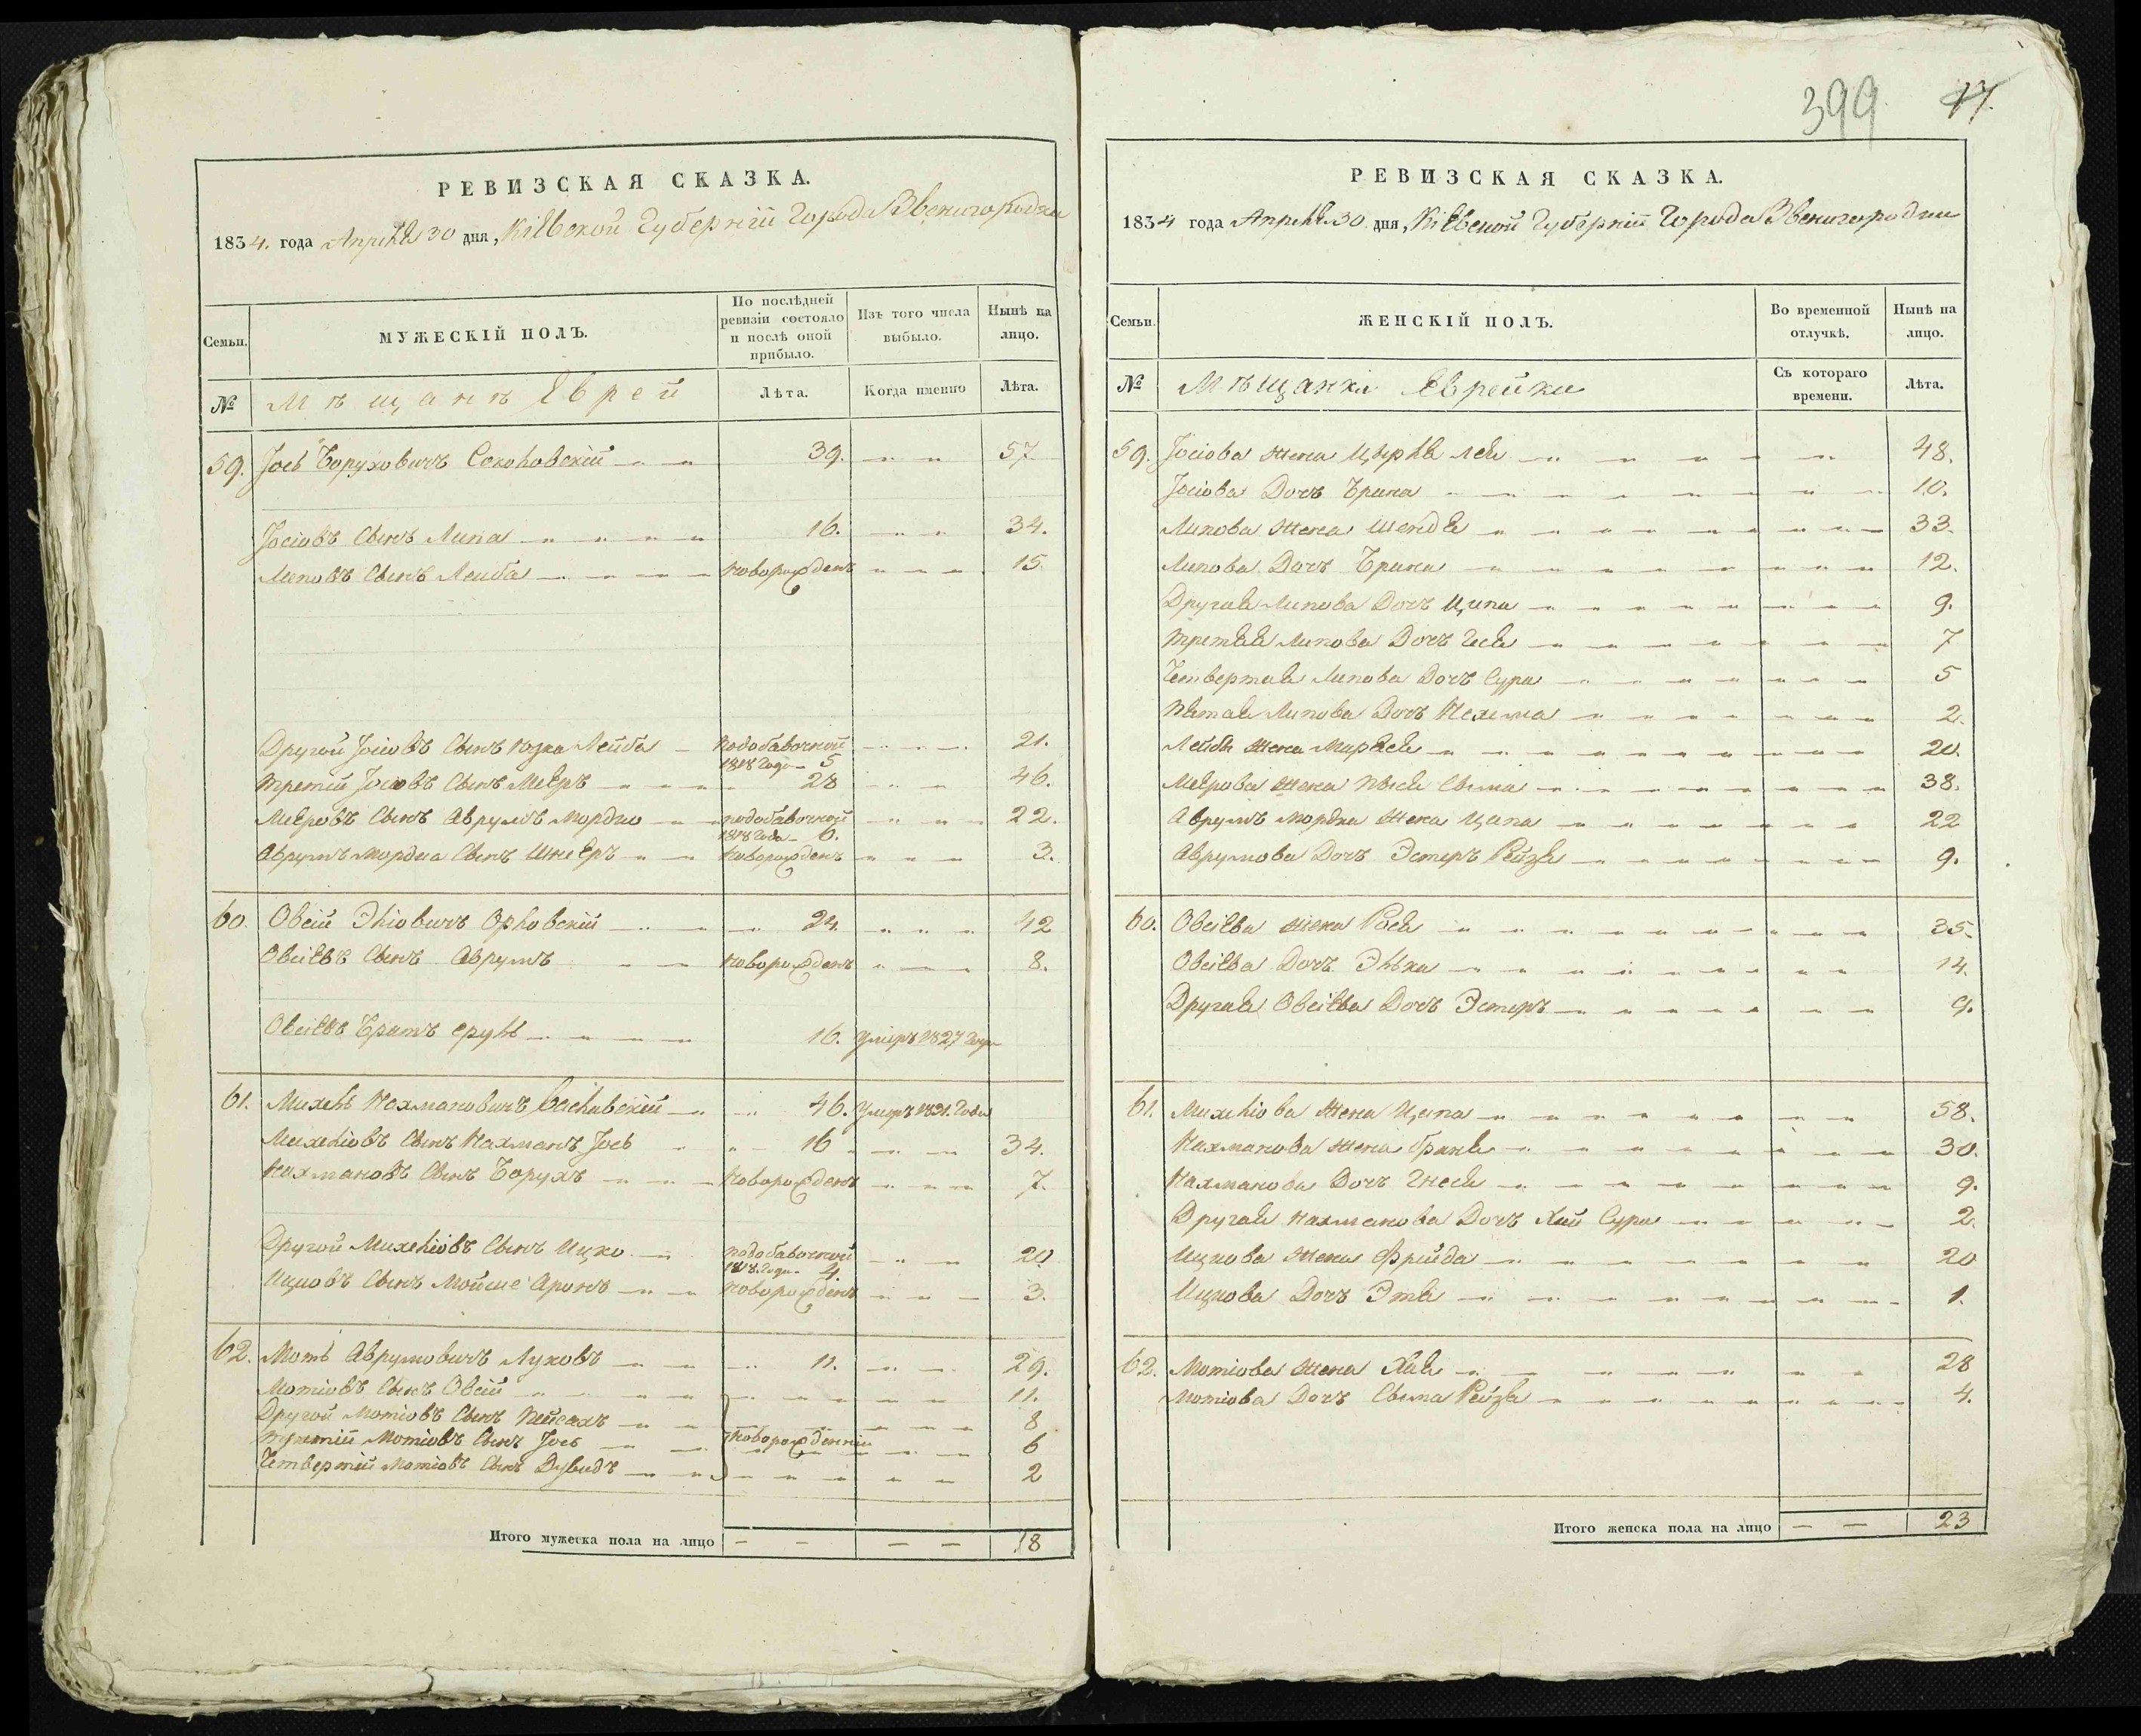 399 17.
РЕВИЗСКАЯ СКАЗКА.
1834. года Апреля 30 дня, Кіевской Губерніи Города Звенигородки
Семьи.
МУЖЕСКІЙ ПОЛЪ.
По послѣдней ревизіи состояло и послѣ оной прибыло.
Изъ того числа выбыло.
Нынѣ на лицо.
№
Мѣщанъ Еврей
Лѣта.
Когда именно
Лѣта.
59. Іось Боруховичъ Соколовскій 39. 57
Іосіовъ Сынъ Липа 16. 34.
Липовъ Сынъ Лейба новорожденъ 15.
Другой Іосіовъ Сынъ Юзка Лейба подобавочной 1818 Года 5 21.
Третій Іосіовъ Сынъ Мееръ 28 46.
Мееровъ Сынъ Аврумъ Мордко подобавочной 1818 Года 6. 22.
Аврумъ Мордка Сынъ Шнееръ новорожденъ 3.
60. Овсій Эліовичъ Орловскій 24. 42
Овсіевъ Сынъ Аврумъ новорожденъ 8.
Овсіевъ Братъ Сруль 16. умеръ 1827 Года
61. Михель Нахмановичъ Василавскій 46. умеръ 1831. Года
Михеліовъ Сынъ Нахманъ Іось 16 34.
Нахмановъ Сынъ Борухъ новорожденъ 7.
Другой Михеліовъ Сынъ Ицко подобавочной 1818. Года 4. 20
Ицковъ Сынъ Мойше Аронъ новорожденъ 3.
62. Моть Аврумовичъ Луковъ 11. 29.
Мотіовъ Сынъ Овсій 11.
Другой Мотіовъ Сынъ Пейсахъ 8
Третій Мотіовъ Сынъ Іось новорожденніи 6
Четвертій Мотіовъ Сынъ Дувидъ 2
Итого мужеска пола на лицо 18
РЕВИЗСКАЯ СКАЗКА.
1834 года Апреля 30 дня, Кіевской Губерніи Города Звенигородки
Семьи.
ЖЕНСКІЙ ПОЛЪ.
Во временной отлучкѣ.
Нынѣ на лицо.
№
Мѣщанки Еврейки
Съ котораго времени.
Лѣта.
59. Іосіова жена Цирля Лея 48.
Іосіова Дочъ Брина 10.
Липова жена Шендя 33.
Липова Дочъ Брина 12.
Другая Липова Дочъ Ципа 9.
Третяя Липова Дочъ 7
Четвертая Липова Дочъ Сура 5
Пятая Липова Дочъ Нехима 2.
Лейби жена Миряся 20.
Меерова жена Сима 38.
Аврумъ Мордка жена Ципа 22
Аврумова Дочъ Эстеръ Рейзя 9.
60. Овсіева жена Рося 35.
Овсіева Дочъ Элька 14.
Другая Овсіева Дочъ Эстеръ 9.
61. Михеліова жена Ципа 58.
Нахманова жена Браня 30.
Нахманова Дочъ Гнеся 9.
Другая Нахманова Дочъ Хая Сура 2.
Ицкова жена Фрейда 20
Ицкова Дочъ Этя 1.
62. Мотіова жена Хая 28
Мотіова Дочъ Сима Рейзя 4.
Итого женска пола на лицо 23